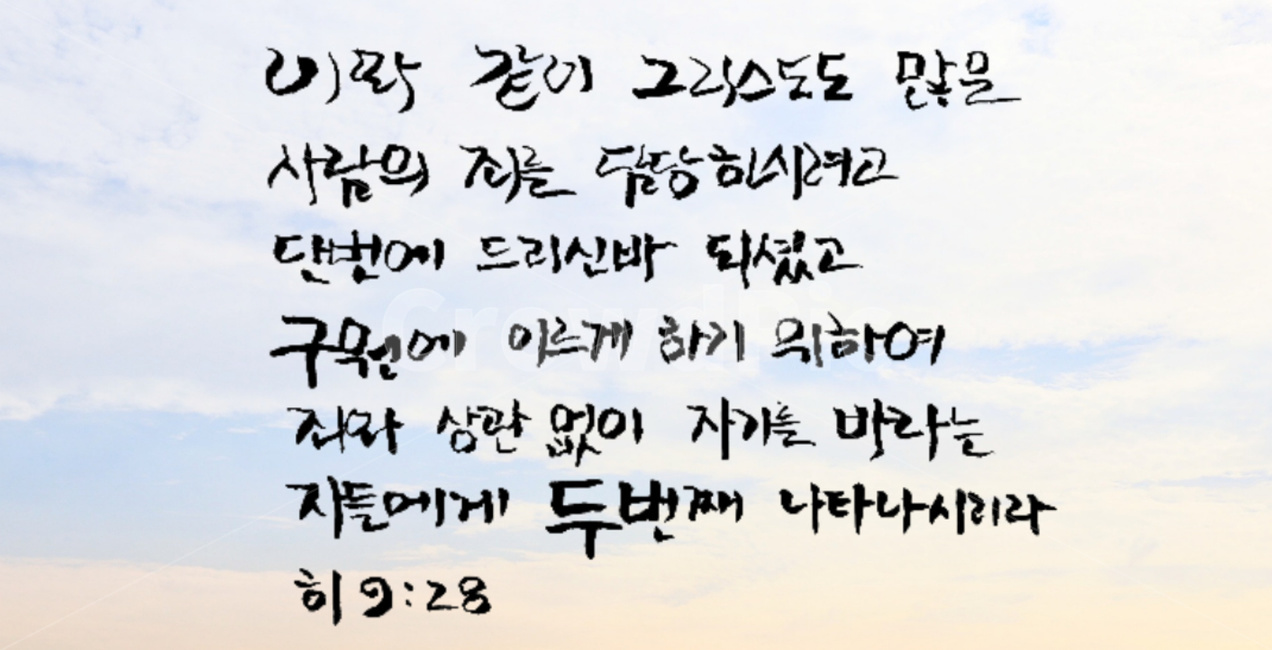 이와 같이 그리스도도 많은
사람의 죄를 담당하시려고
단번에 드리신바 되셨고
구원에 이르게 하기 위하여
죄와 상관 없이 자기를 바라는
자들에게 두번째 나타나시리라
히 9:28
CrowdPic